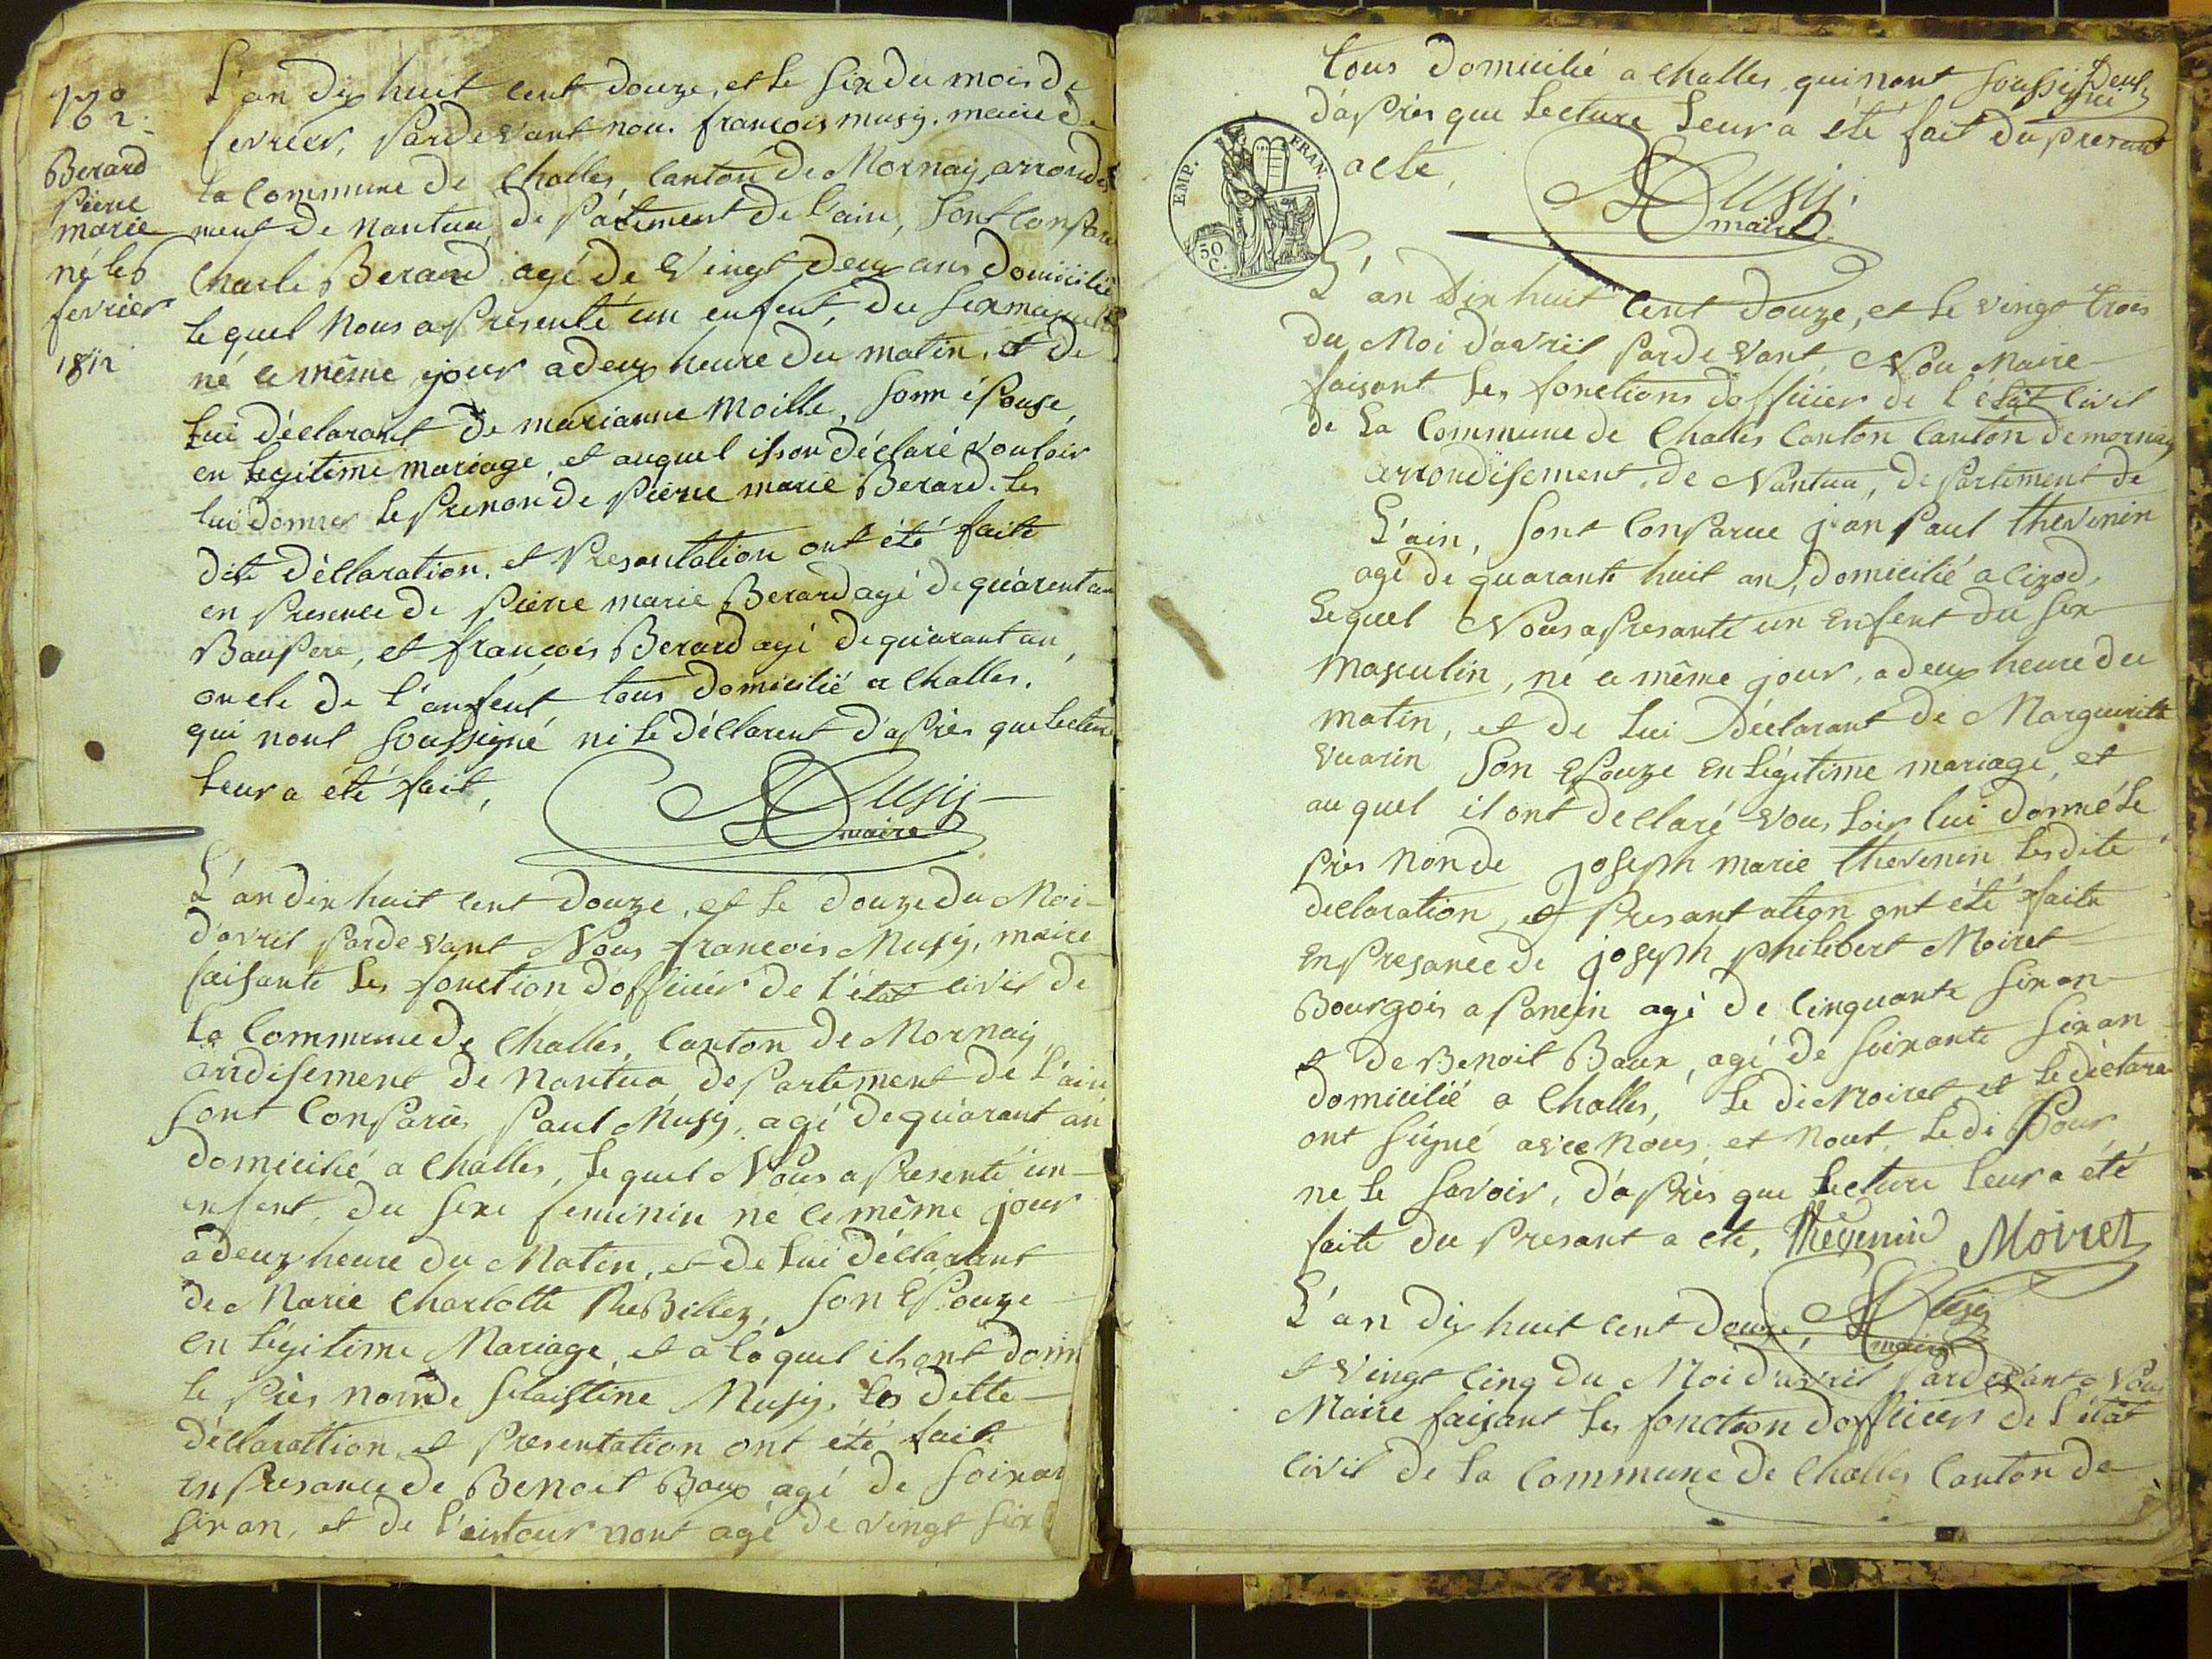 Berard
Pierre
marie
né le 6
fevrier
1812
L'an dix huit cent douze, et le six du mois de
fevrier, pardevant nou. francois musy. maire de
la Commune de Challes, Canton de Mornay, arrondis
ment de nantua, de partiment de l'ain, sont Conparu
Charle Berard agé de vingt deux ans domicilié
le quel nous a presenté un enfent, du sex masculin
né ce même jour a deux heure du matin, et de
lui déclarant de marianne Moille, sonn épouse,
en legitime mariage, et auquel ils on déclaré vouloir
lui donner le prenon de Pierre marie Berard. les
dite déclaration, et Presantation ont été faite
en presence de pierre marie Berard agé de quarent an
Baupere, et françois Berard agé de quarant an,
oncle de l'anfent tous domicilié a Challes.
qui nont soussigné ni le déclarent d'aprés que lecture
leur a été fait,
Musy
maire
L'an dix huit cent douze, et le douze du Moi
d'avril pardevant Nous francois Musy, maire
faisante les fonction d'officiér de l'état civil de
la Commune de Challes, Canton de Mornay
aridisement de nantua, departement de l'ain
sont Conparus Paul Musy, agé de quarant an
domicilié a Challes, le quel Nous a presenté un
enfent, du sexe feminin né ce même jour
a deux heure du Matin, et de lui déclarant
de Marie Charlotte ReBillez, son Epouze
en légitime Mariage, et a la quel ils ont donn
le près nom de Musy. les dette
déclarattion, et Presentation ont été fait
en presance de Benoit Baux agé de soixan
six an, et de nont agé de vingt six
tous domicilié a Challes, qui nont soussigné
d'après que lecture leur a été fait du presant
acte,
EMP. FRAN.
50
C.
Musy.
maire
L'an dix huit cent douze, et le vingt trois
du Moi d'avril pardevant, Nou Maire
faisant les fonctions d'officier de l'état Civil
de la Commune de Challes Canton Canton de mornay
arrondisement, de Nantua, departement de
L'ain, sont Conparue jean Paul thevenin
agé de quarante huit an, domicilié a Cizod,
Lequel Nous a presanté un Enfent du sex
Masculin, né ce même jour, a deux heure du
matin, et de lui déclarant de Marguerite
vuarin son Epouze en légitime mariage, et
au quel il ont declaré vous loir lui donné le
près non de joseph marie thevenin les dite
declaration, et Presantation ont été faite
en presance de joseph philebert Moiret
Bourgois a poncin agé de Cinquante six an
et de Benoit Baux, agé de soixante six an
domicilié a Challes, le di Moiret, et le déclara
ont signé avec Nous, et Nont, le di Pour
ne le savoir, d'après que lecture leur a été
faite du presant a cte, Thevenin Moiret
Musy
maire
L'an dix huit cent douze,
et vingt cinq du Moi d'avril pardevant Nous
Maire faisant les fonction d'officier de l'état
civil de la Commune de Challes Canton de